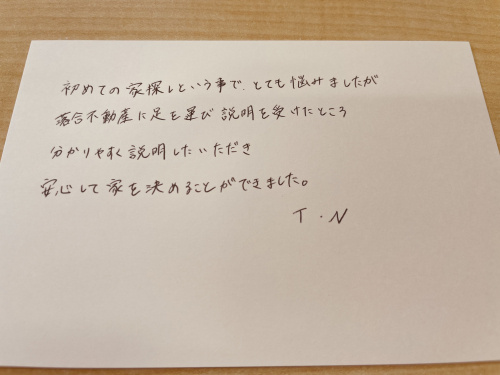 初めての家探しという事で、とても悩みましたが
落合不動産に足を運び説明を受けたところ
分かりやすく説明したいただき
安心して家を決めることができました。
T・N